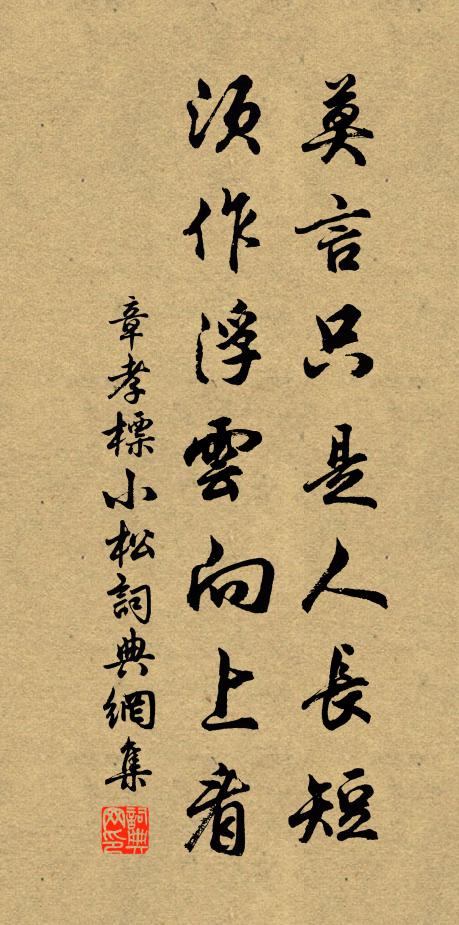 莫言只是人長短
須作浮雲向上看
章孝標小松詞典網集
詞典
网印